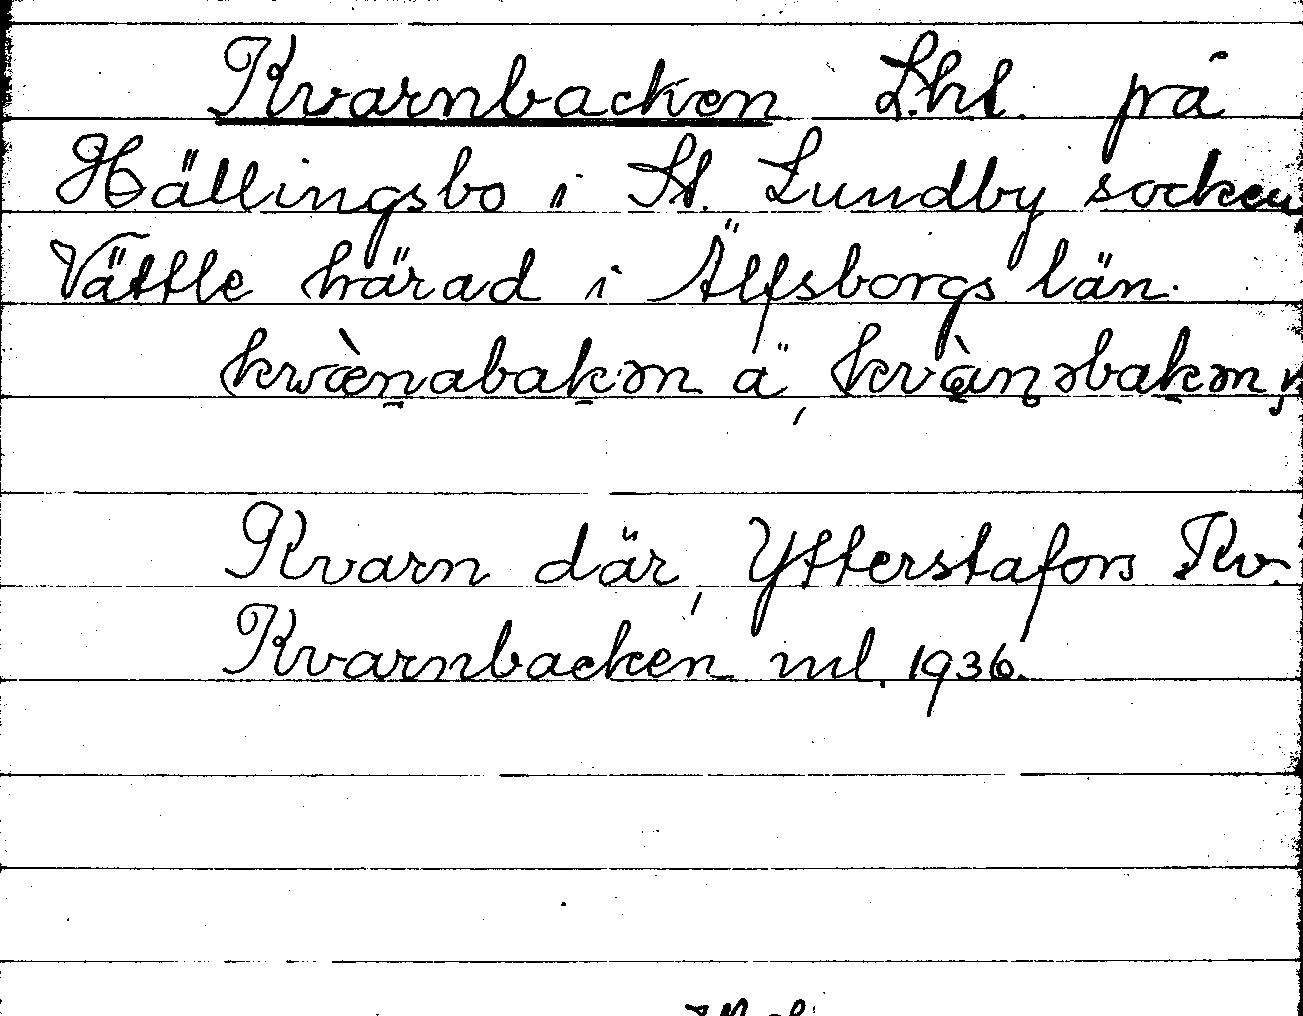 Kvarnbacken L.hl. på
Hällingsbo i St. Lundby socken,
Vättle härad i Älfsborgs län.
kwæ̀nabakən ä, kvànəbakən,

Kvarn där, Ytterstafors Kv.
Kvarnbacken ml. 1936.